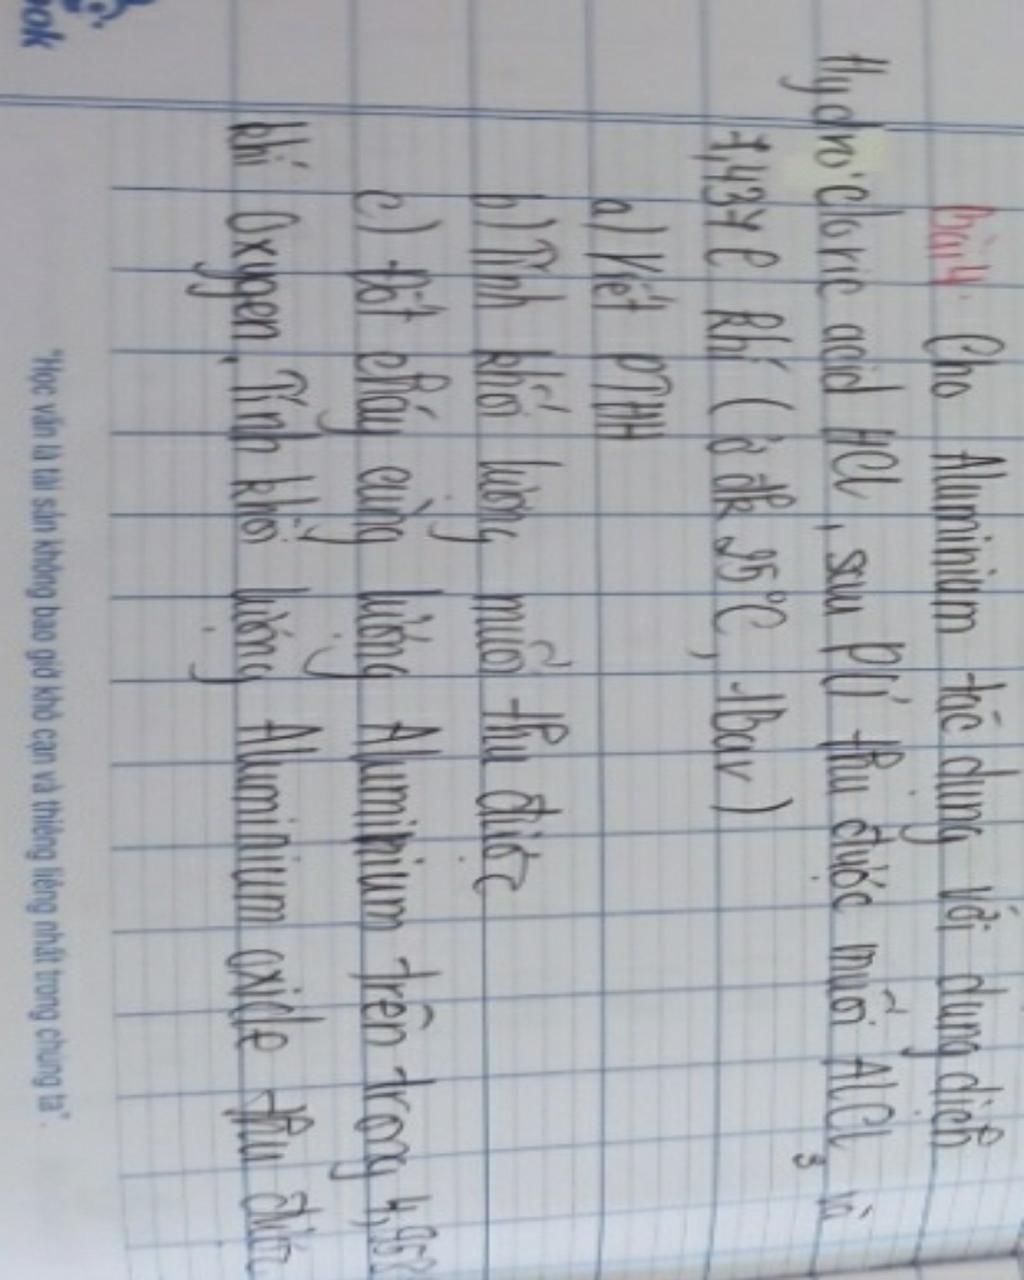 Bài 4. Cho Aluminium tác dụng với dung dịch
Hydro cloric acid HCl, sau PƯ thu được muối AlCl3 và
7,437 l khí (ở đk 25°C, 1bar)
a) Viết PTHH
b) Tính khối lượng muối thu được
c) Đốt cháy cùng lượng Aluminium trên trong 4,958
khí Oxygen. Tính khối lượng Aluminium oxide thu được
"Học vấn là tài sản không bao giờ khô cạn và thiêng liêng nhất trong chúng ta".
ook